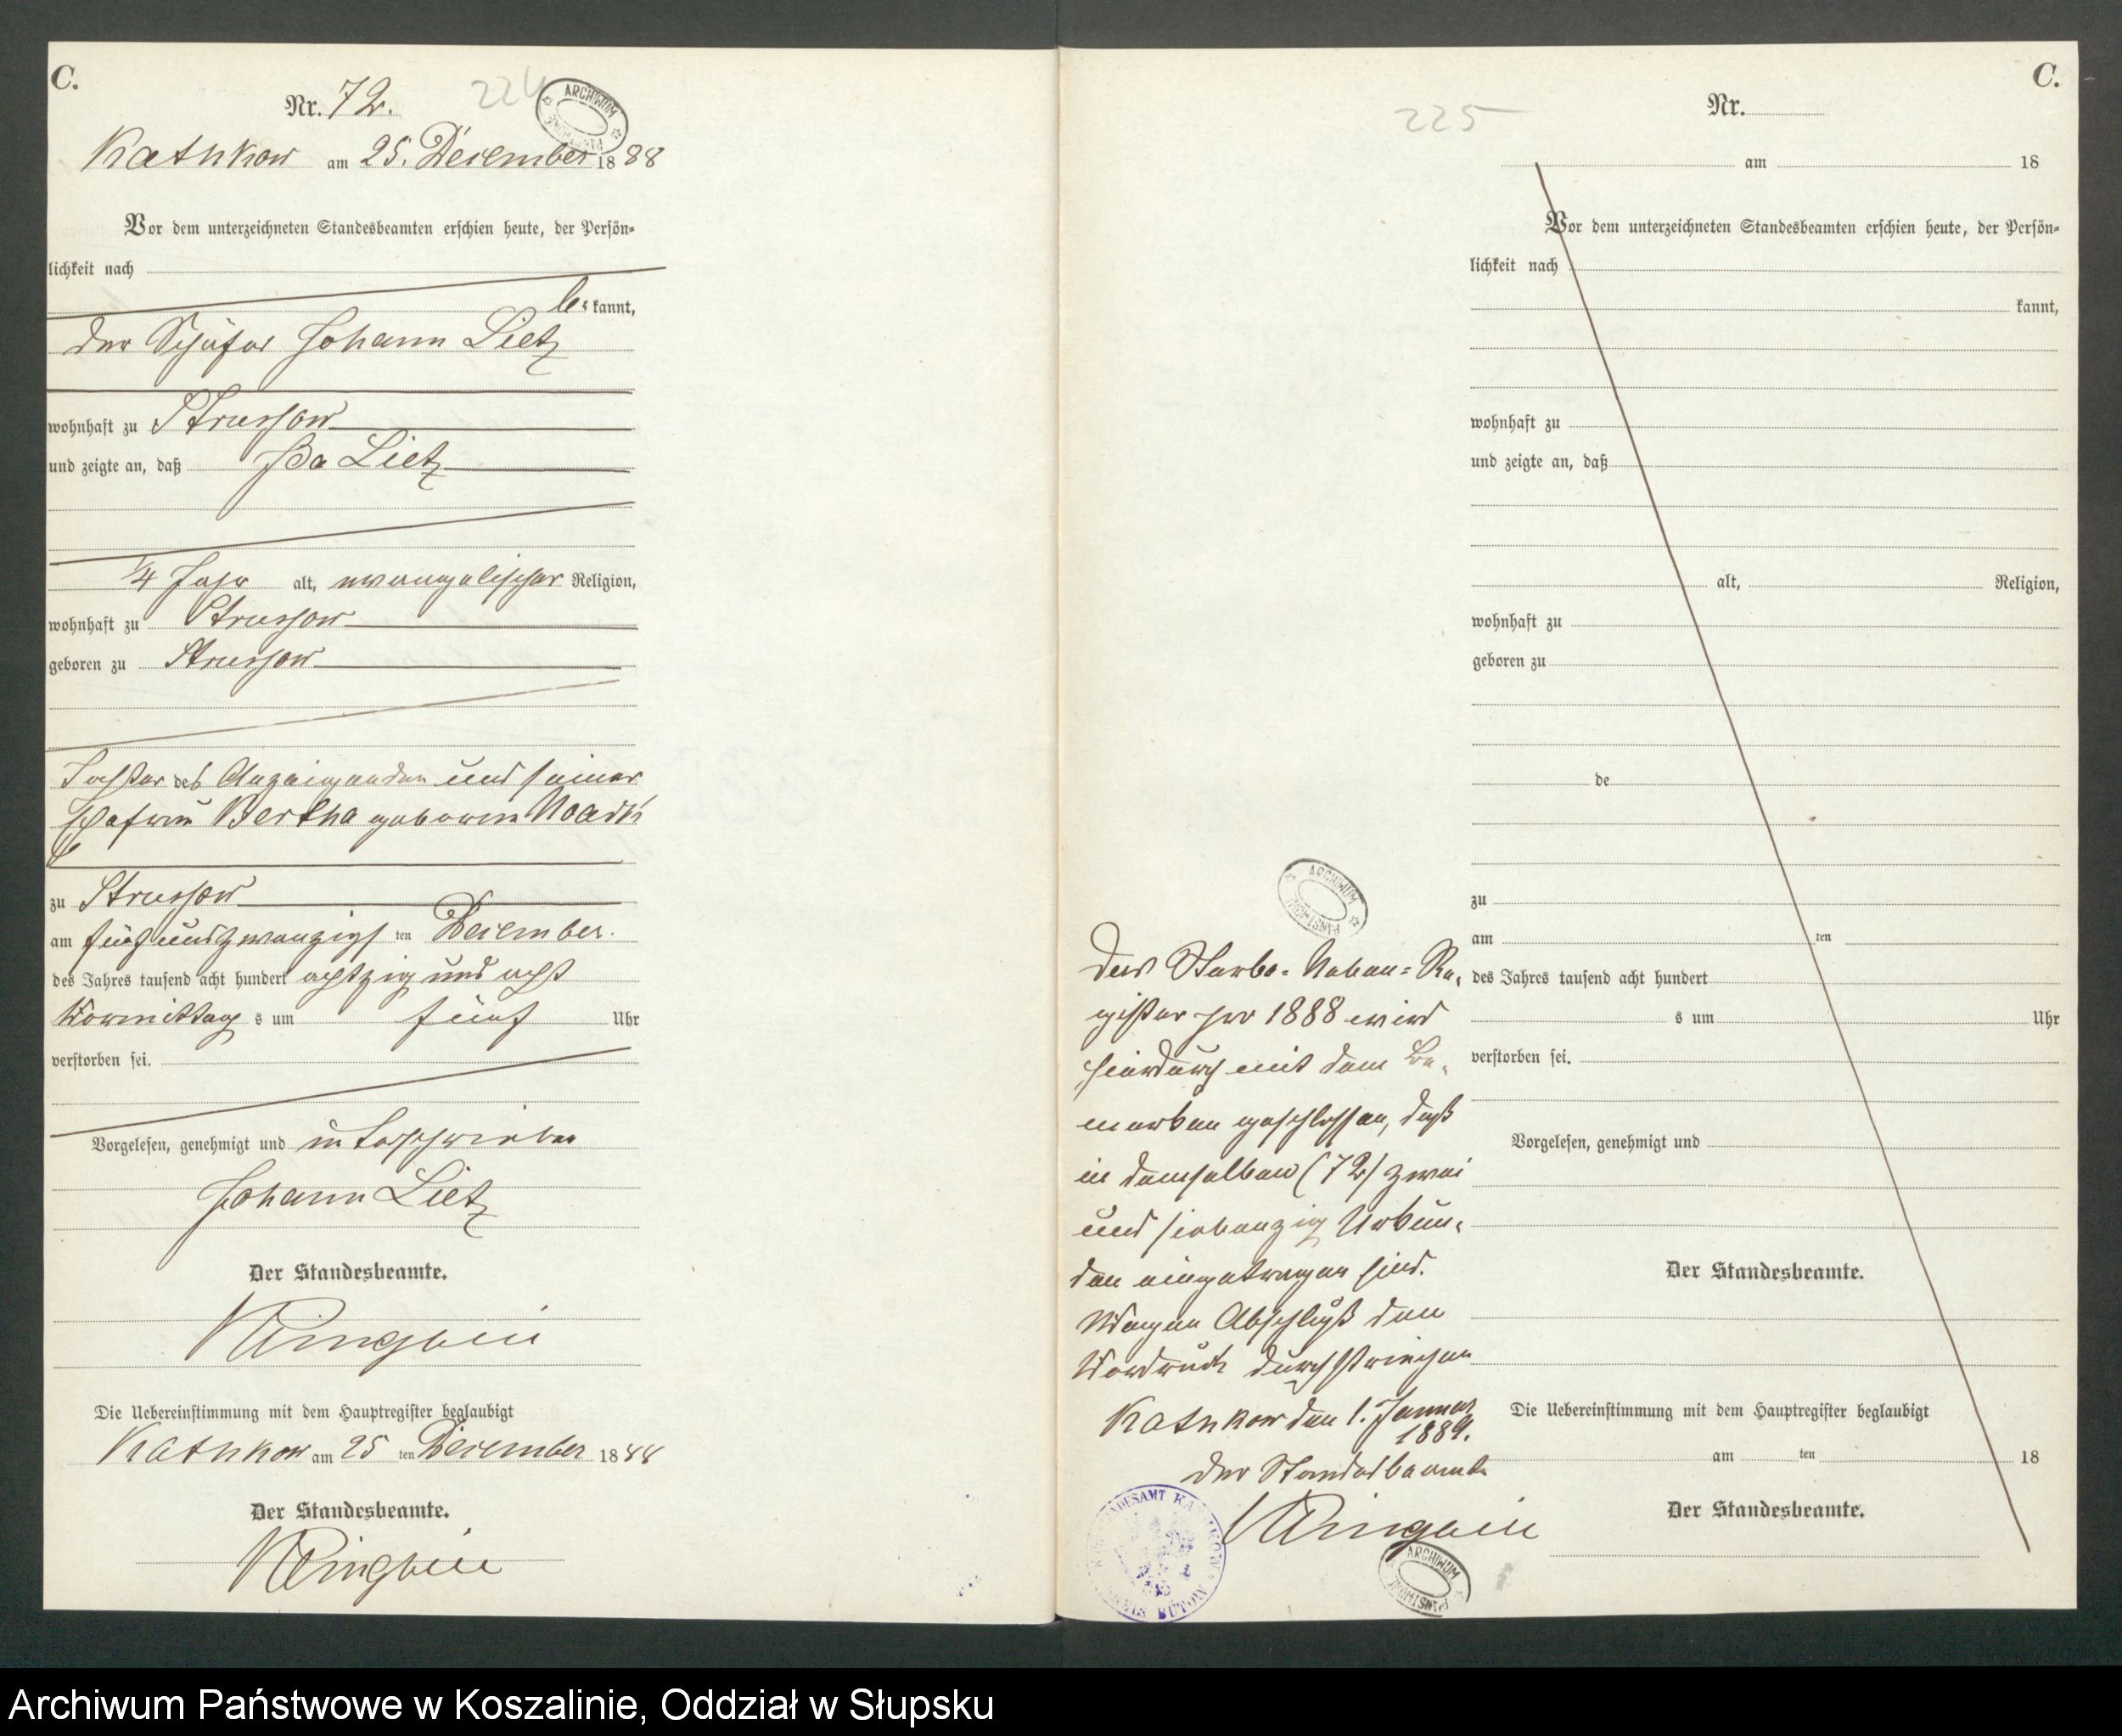 C.
Nr. 72.
224
ARCHIWUM PAŃSTWOWE
Kathkow am 25. December 1888
Vor dem unterzeichneten Standesbeamten erschien heute, der Persön-
lichkeit nach
be kannt,
der Schäfer Johann Lietz
wohnhaft zu Strussow
und zeigte an, daß Ida Lietz
1/4 Jahr alt, evangelischer Religion,
wohnhaft zu Strussow
geboren zu Strussow
Tochter des Anzeigenden und seiner
Ehefrau Bertha geborene Noack
zu Strussow
am fünfundzwanzigsten December
des Jahres tausend acht hundert achtzig und acht
Vormittags um fünf Uhr
verstorben sei.
Vorgelesen, genehmigt und unterschrieben
Johann Lietz
Der Standesbeamte.
Die Uebereinstimmung mit dem Hauptregister beglaubigt
Kathkow am 25 ten December 1888
Der Standesbeamte.
C.
225
Nr.
am 18
Vor dem unterzeichneten Standesbeamten erschien heute, der Persön-
lichkeit nach
kannt,
wohnhaft zu
und zeigte an, daß
alt, Religion,
wohnhaft zu
geboren zu
de
zu
am ten
des Jahres tausend acht hundert
s um Uhr
verstorben sei.
Vorgelesen, genehmigt und
Der Standesbeamte.
Die Uebereinstimmung mit dem Hauptregister beglaubigt
am ten 18
Der Standesbeamte.
ARCHIWUM PAŃSTWOWE
Das Sterbe-Neben-Re-
gister pro 1888 wird
hierdurch mit dem Be-
merken geschlossen, daß
in demselben (72) zwei
und siebenzig Urkun-
den eingetragen sind.
Wegen Abschluß den
Vordruck durchstrichen
Kathkow den 1. Januar
1889.
Der Standesbeamte
BÜTOW
ARCHIWUM PAŃSTWOWE
Archiwum Państwowe w Koszalinie, Oddział w Słupsku